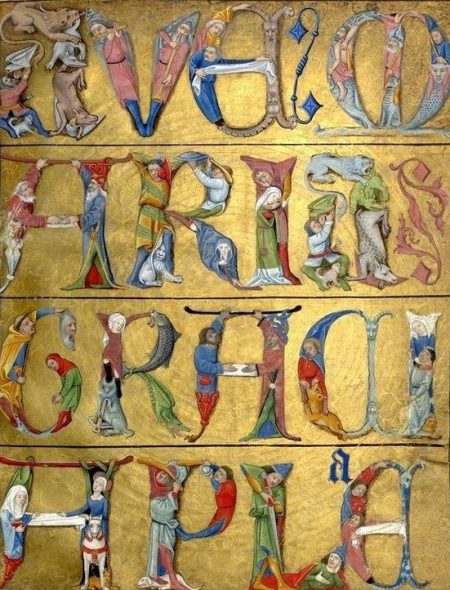 AVE M
ARIA
GRACI
a
APLE